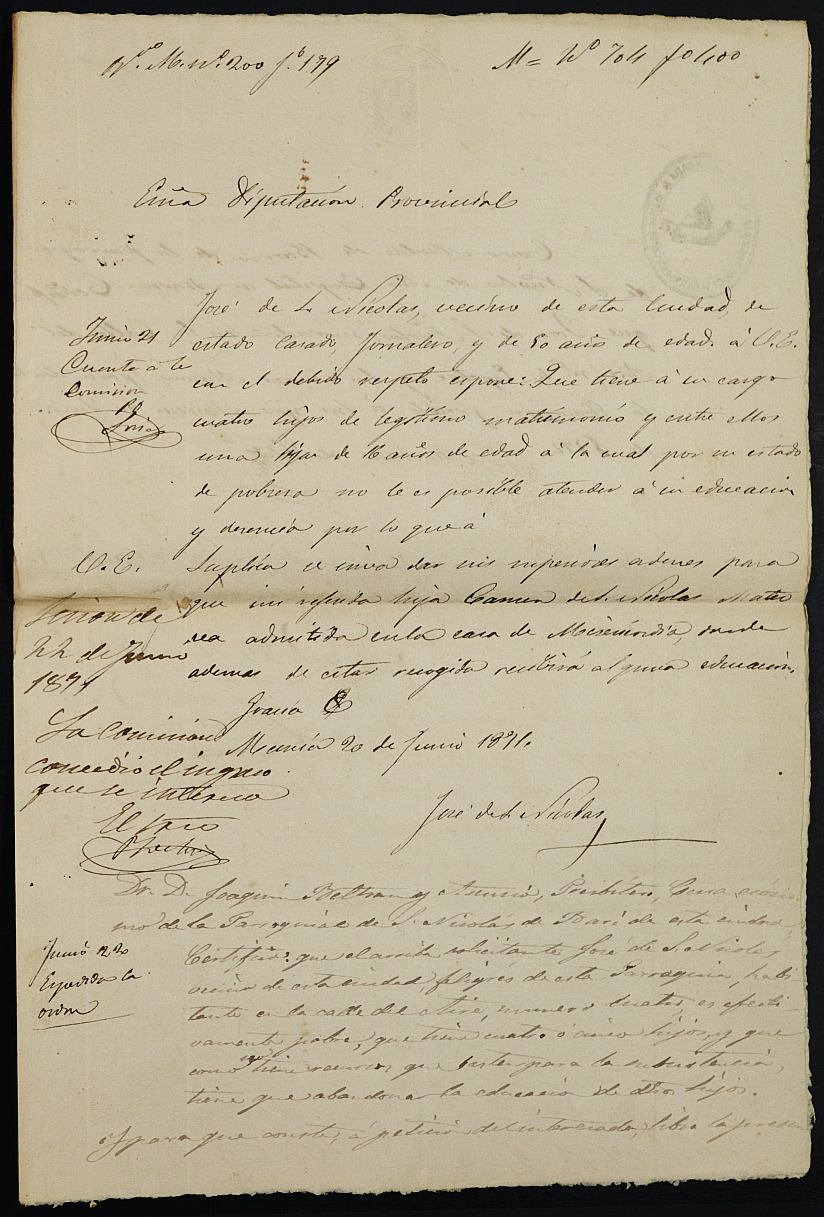 M. Nº. 200 fº. 179
M= Nº 704 fº 400
Exma Diputacion Provincial
José de S. Nicolas, vecino de esta Ciudad, de
estado casado, Jornalero, y de 50 años de edad. á V.E.
con el debido respeto espone: Que tiene á su cargo
cuatro hijos de legitimo matrimonio y entre ellos
una hija de años de edad á la cual por su estado
de pobresa no le es posible atender á su educacion
y desencia por lo que á
V. E. Suplica se sirva dar sus superiores ordenes para
que su referida hija Carmen de S. Nicolas Mateo
sea admitida en la casa de Misericordia, donde
ademas de estar recogida recibirá alguna educacion.
Gracia &
Murcia 20 de Junio 1871.
José de S. Nicolas
Junio 21
Cuenta á la
Comision
Sesion de
22 de Junio
1871
La comision
concedió el ingreso
que se interesa
El Srio
Dr. D. Joaquin Beltran y Asensio, Presbitero, Cura ecónó-
mo de la Parroquial de S. Nicolás de Bari de esta ciudad
Certifico: que el arriba solicitante José de S. Nicolas,
vecino de esta ciudad, feligres de esta Parroquia, habi-
tante en la calle del Aire, numero cuatro, es efecti-
vamente pobre, que tiene cuatro ó cinco hijos, y que
como no tiene recursos que basten para la subsistencia,
tiene que abandonar la educacion de dhos hijos.
Y para que conste, á peticion del interesado, libro la presen
Junio 22
Espedida la
orden